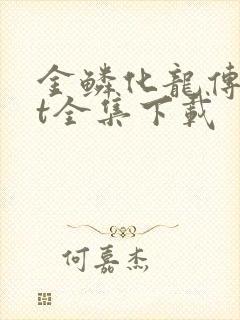 金鳞化龍傳
t全集下载
何嘉杰